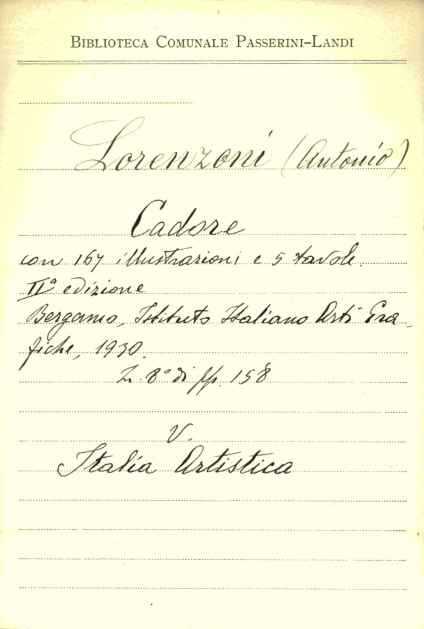 BIBLIOTECA COMUNALE PASSERINI-LANDI
Lorenzoni (Antonio)
Cadore
con 167 illustrazioni e 5 tavole.
IIª edizione
Bergamo, Istituto Italiano Arti Gra-
fiche, 1930.
In 8° di pp. 158
V.
Italia Artistica